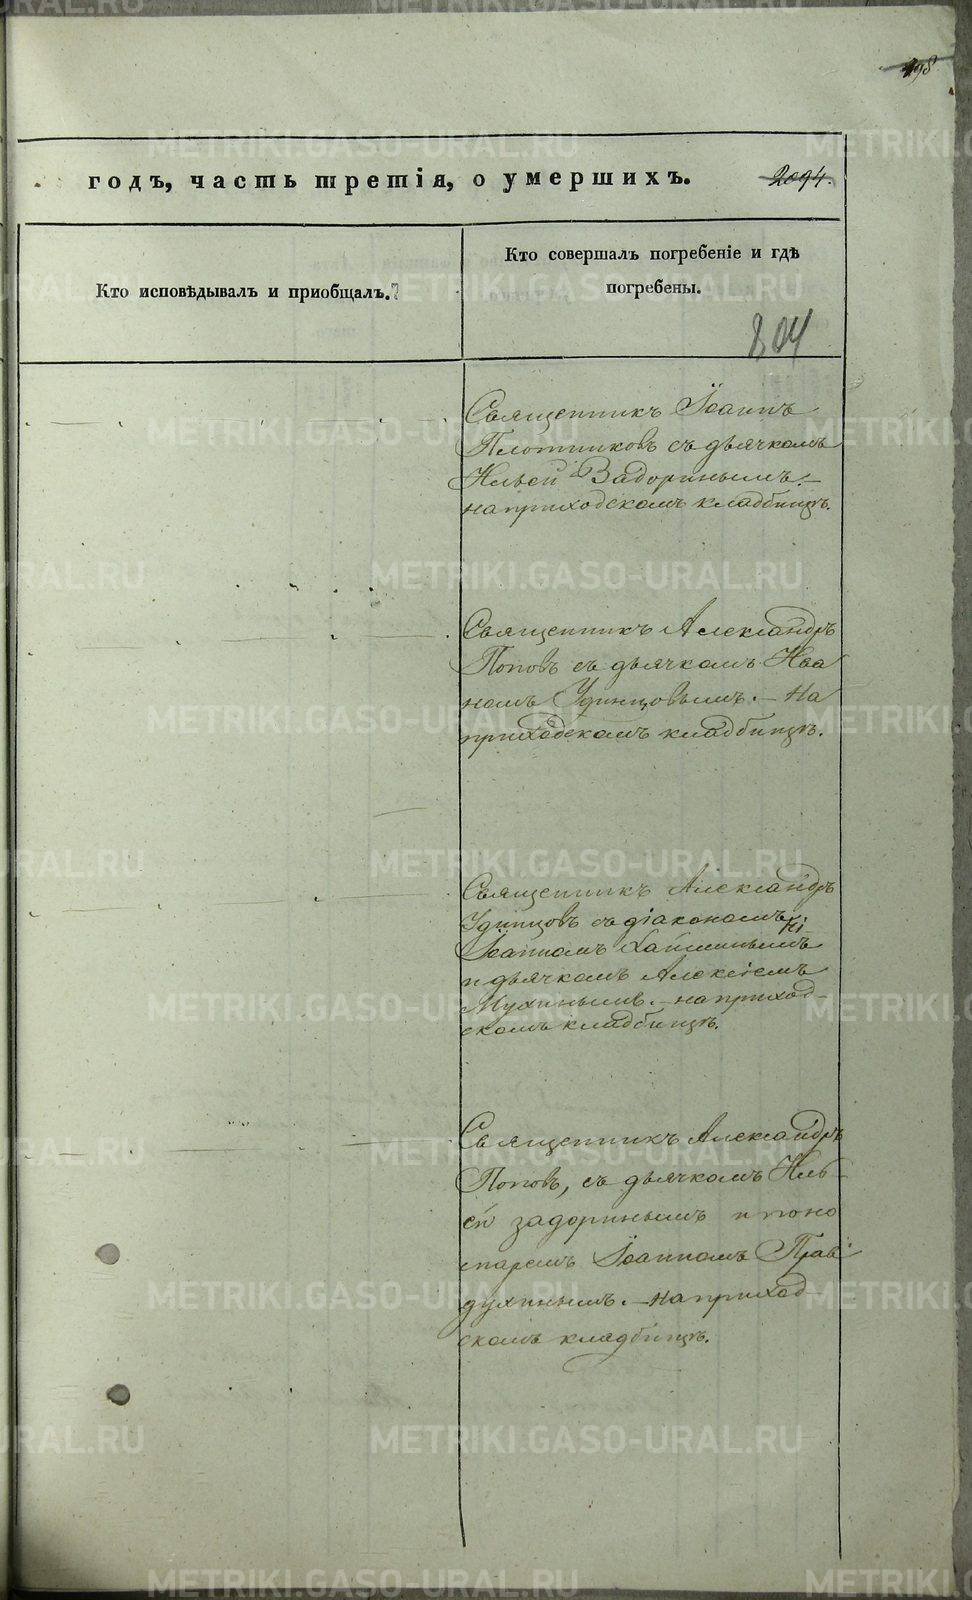 198
годъ, часть третія, о умершихъ.
2094.
Кто исповѣдывалъ и приобщалъ.
Кто совершалъ погребеніе и гдѣ
погребены.
804
Священникъ Іоаннъ
Плотниковъ съ дьячкомъ
Ильей Задоринымъ. –
на приходскомъ кладбищѣ.
Священникъ Александръ
Поповъ съ дьячкомъ Ива
номъ Удинцовымъ. – На
приходскомъ кладбищѣ.
Священникъ Александръ
Удинцовъ съ діакономъ
Іоанномъ
и дьячкомъ Алексіемъ
Мухинымъ. – на приход–
скомъ кладбищѣ.
Священникъ Александръ
Поповъ, съ дьячкомъ Иль–
ей задоринымъ и поно
маремъ Іоанномъ Прав
духинымъ. – на приход–
скомъ кладбищѣ.
METRIKI.GASO-URAL.RU